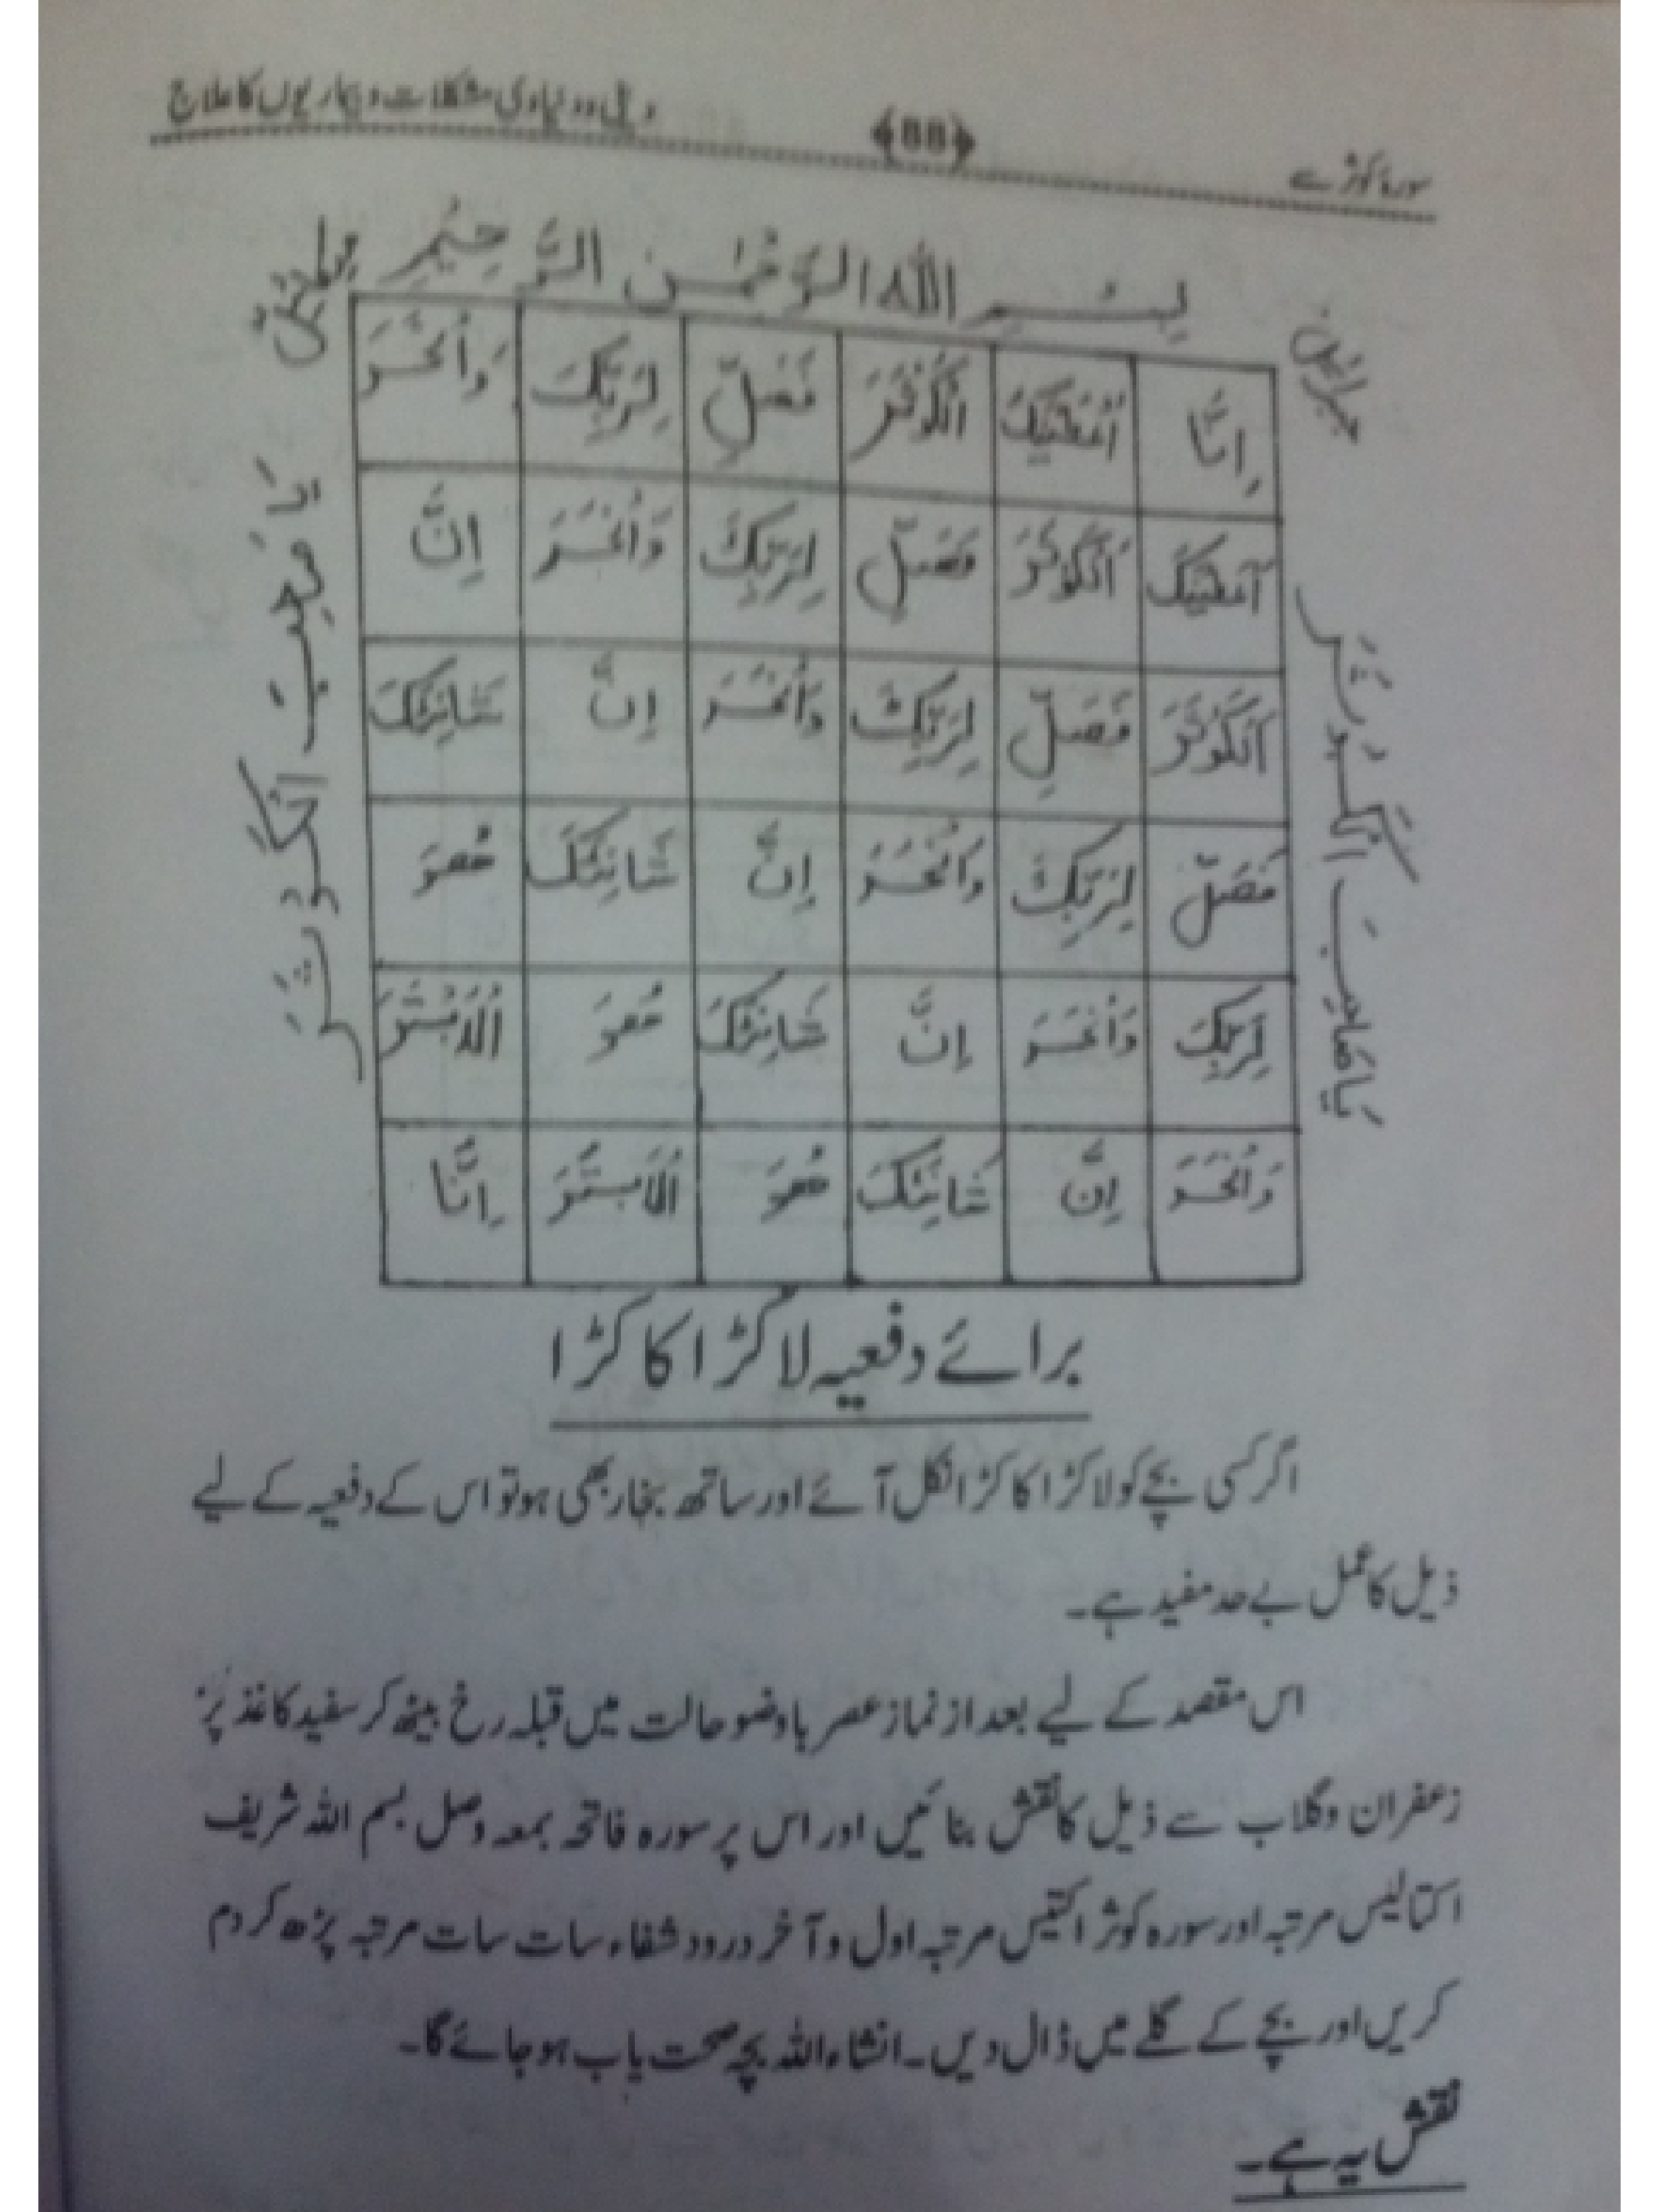 سورۂ کوثر سے ﴿88﴾ دینی و دنیاوی مشکلات و بیماریوں کا علاج
بِسْمِ اللہِ الرَّحْمٰنِ الرَّحِیْمِ
جبرائیل
میکائیل
اِنَّا اَعْطَیْنٰکَ الْکَوْثَرَ فَصَلِّ لِرَبِّکَ وَانْحَرْ
اَعْطَیْنٰکَ الْکَوْثَرَ فَصَلِّ لِرَبِّکَ وَانْحَرْ اِنَّ
الْکَوْثَرَ فَصَلِّ لِرَبِّکَ وَانْحَرْ اِنَّ شَانِئَکَ
فَصَلِّ لِرَبِّکَ وَانْحَرْ اِنَّ شَانِئَکَ ھُوَ
لِرَبِّکَ وَانْحَرْ اِنَّ شَانِئَکَ ھُوَ الْاَبْتَرُ
وَانْحَرْ اِنَّ شَانِئَکَ ھُوَ الْاَبْتَرُ اِنَّا
یَا صاحِبَ الکوثر
الکوثر
برائے دفعیہ لاکڑا کاکڑا
اگر کسی بچے کو لاکڑا کاکڑا نکل آئے اور ساتھ بخار بھی ہو تو اس کے دفعیہ کے لیے
ذیل کا عمل بے حد مفید ہے۔
اس مقصد کے لیے بعد از نماز عصر باوضو حالت میں قبلہ رخ بیٹھ کر سفید کاغذ پر
زعفران و گلاب سے ذیل کا نقش بنائیں اور اس پر سورہ فاتحہ بمعہ وصل بسم اللہ شریف
اکتالیس مرتبہ اور سورہ کوثر اکتیس مرتبہ اول و آخر درود شفاء سات سات مرتبہ پڑھ کر دم
کریں اور بچے کے گلے میں ڈال دیں۔ انشاء اللہ بچہ صحت یاب ہو جائے گا۔
نقش یہ ہے۔